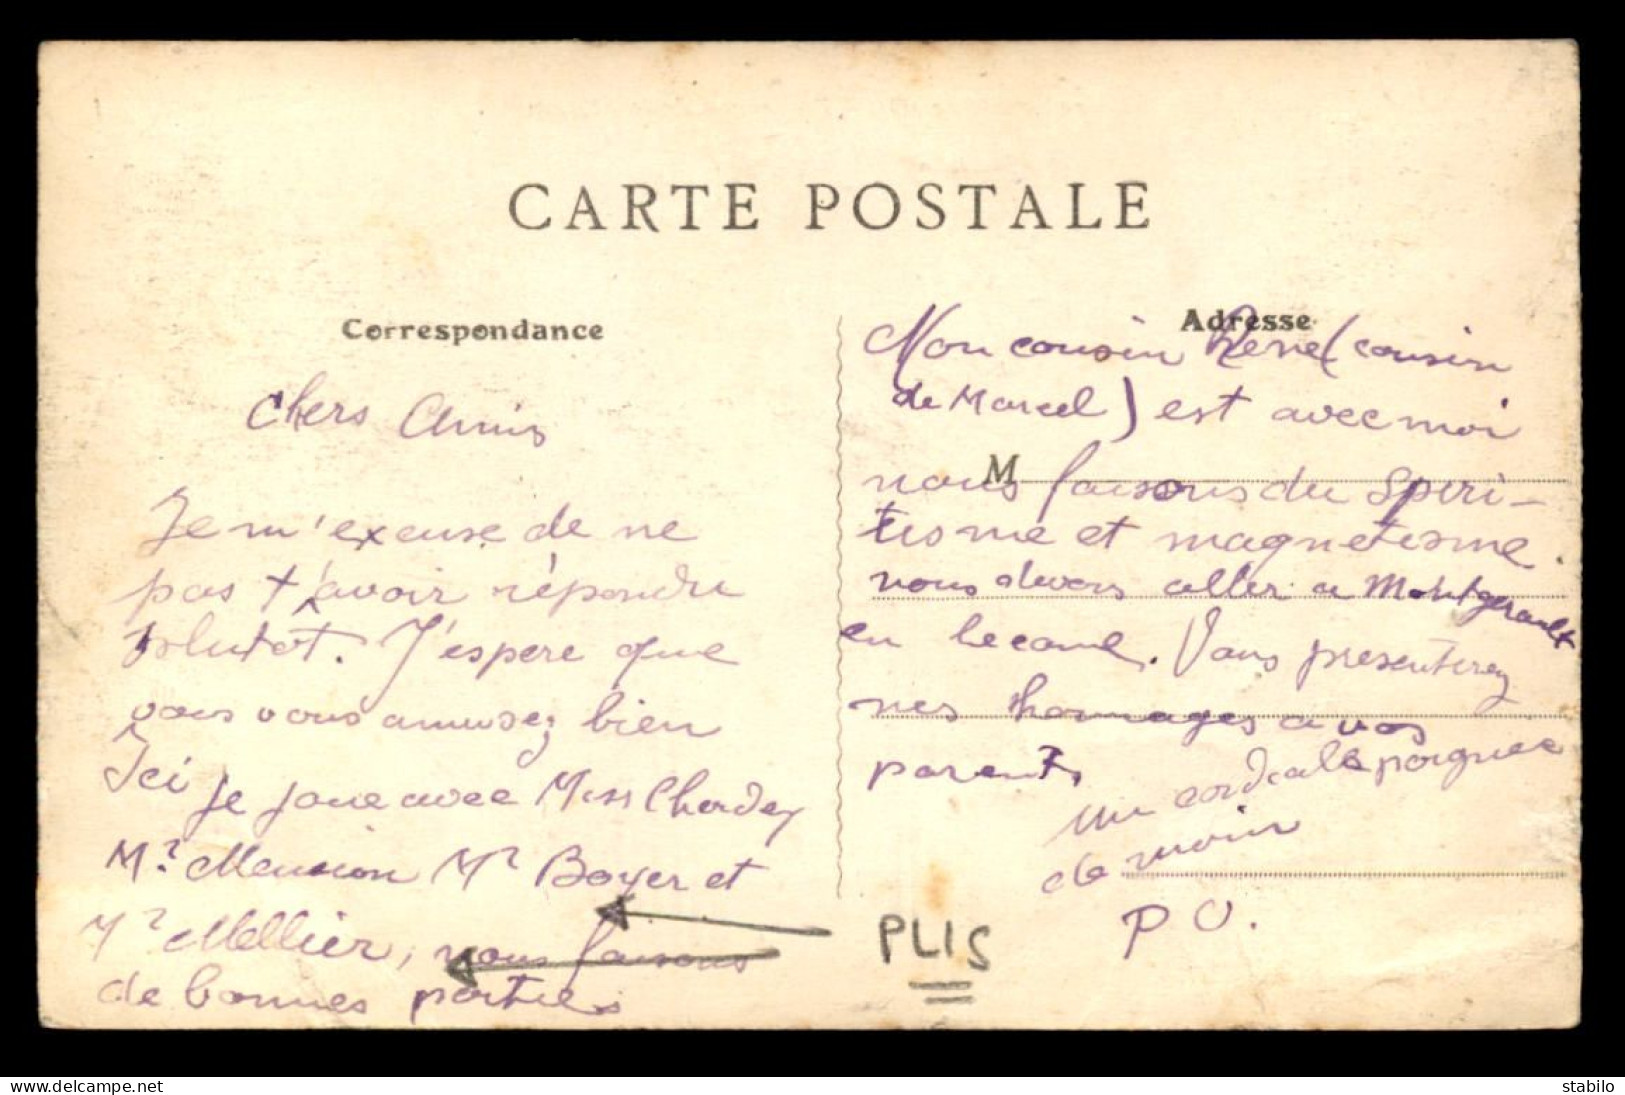 CARTE POSTALE
Correspondance
Chers Amis
Je m'excuse de ne
pas t'avoir répondu
plutot. J'espere que
vous vous amusez bien
Ici je joue avec Miss Chardey
Mr Mension Mr Boyer et
Mr Mellier, nous faisons
de bonnes parties
Adresse
Mon cousin René (cousin
de Marcel) est avec moi
M
nous faisons du spiri-
tisme et magnetisme.
nous devons aller a Montgerault
en . Vous presenterez
mes homages a vos
parents
une cordiale poignee
de main
P O.
PLIS
www.delcampe.net
stabilo